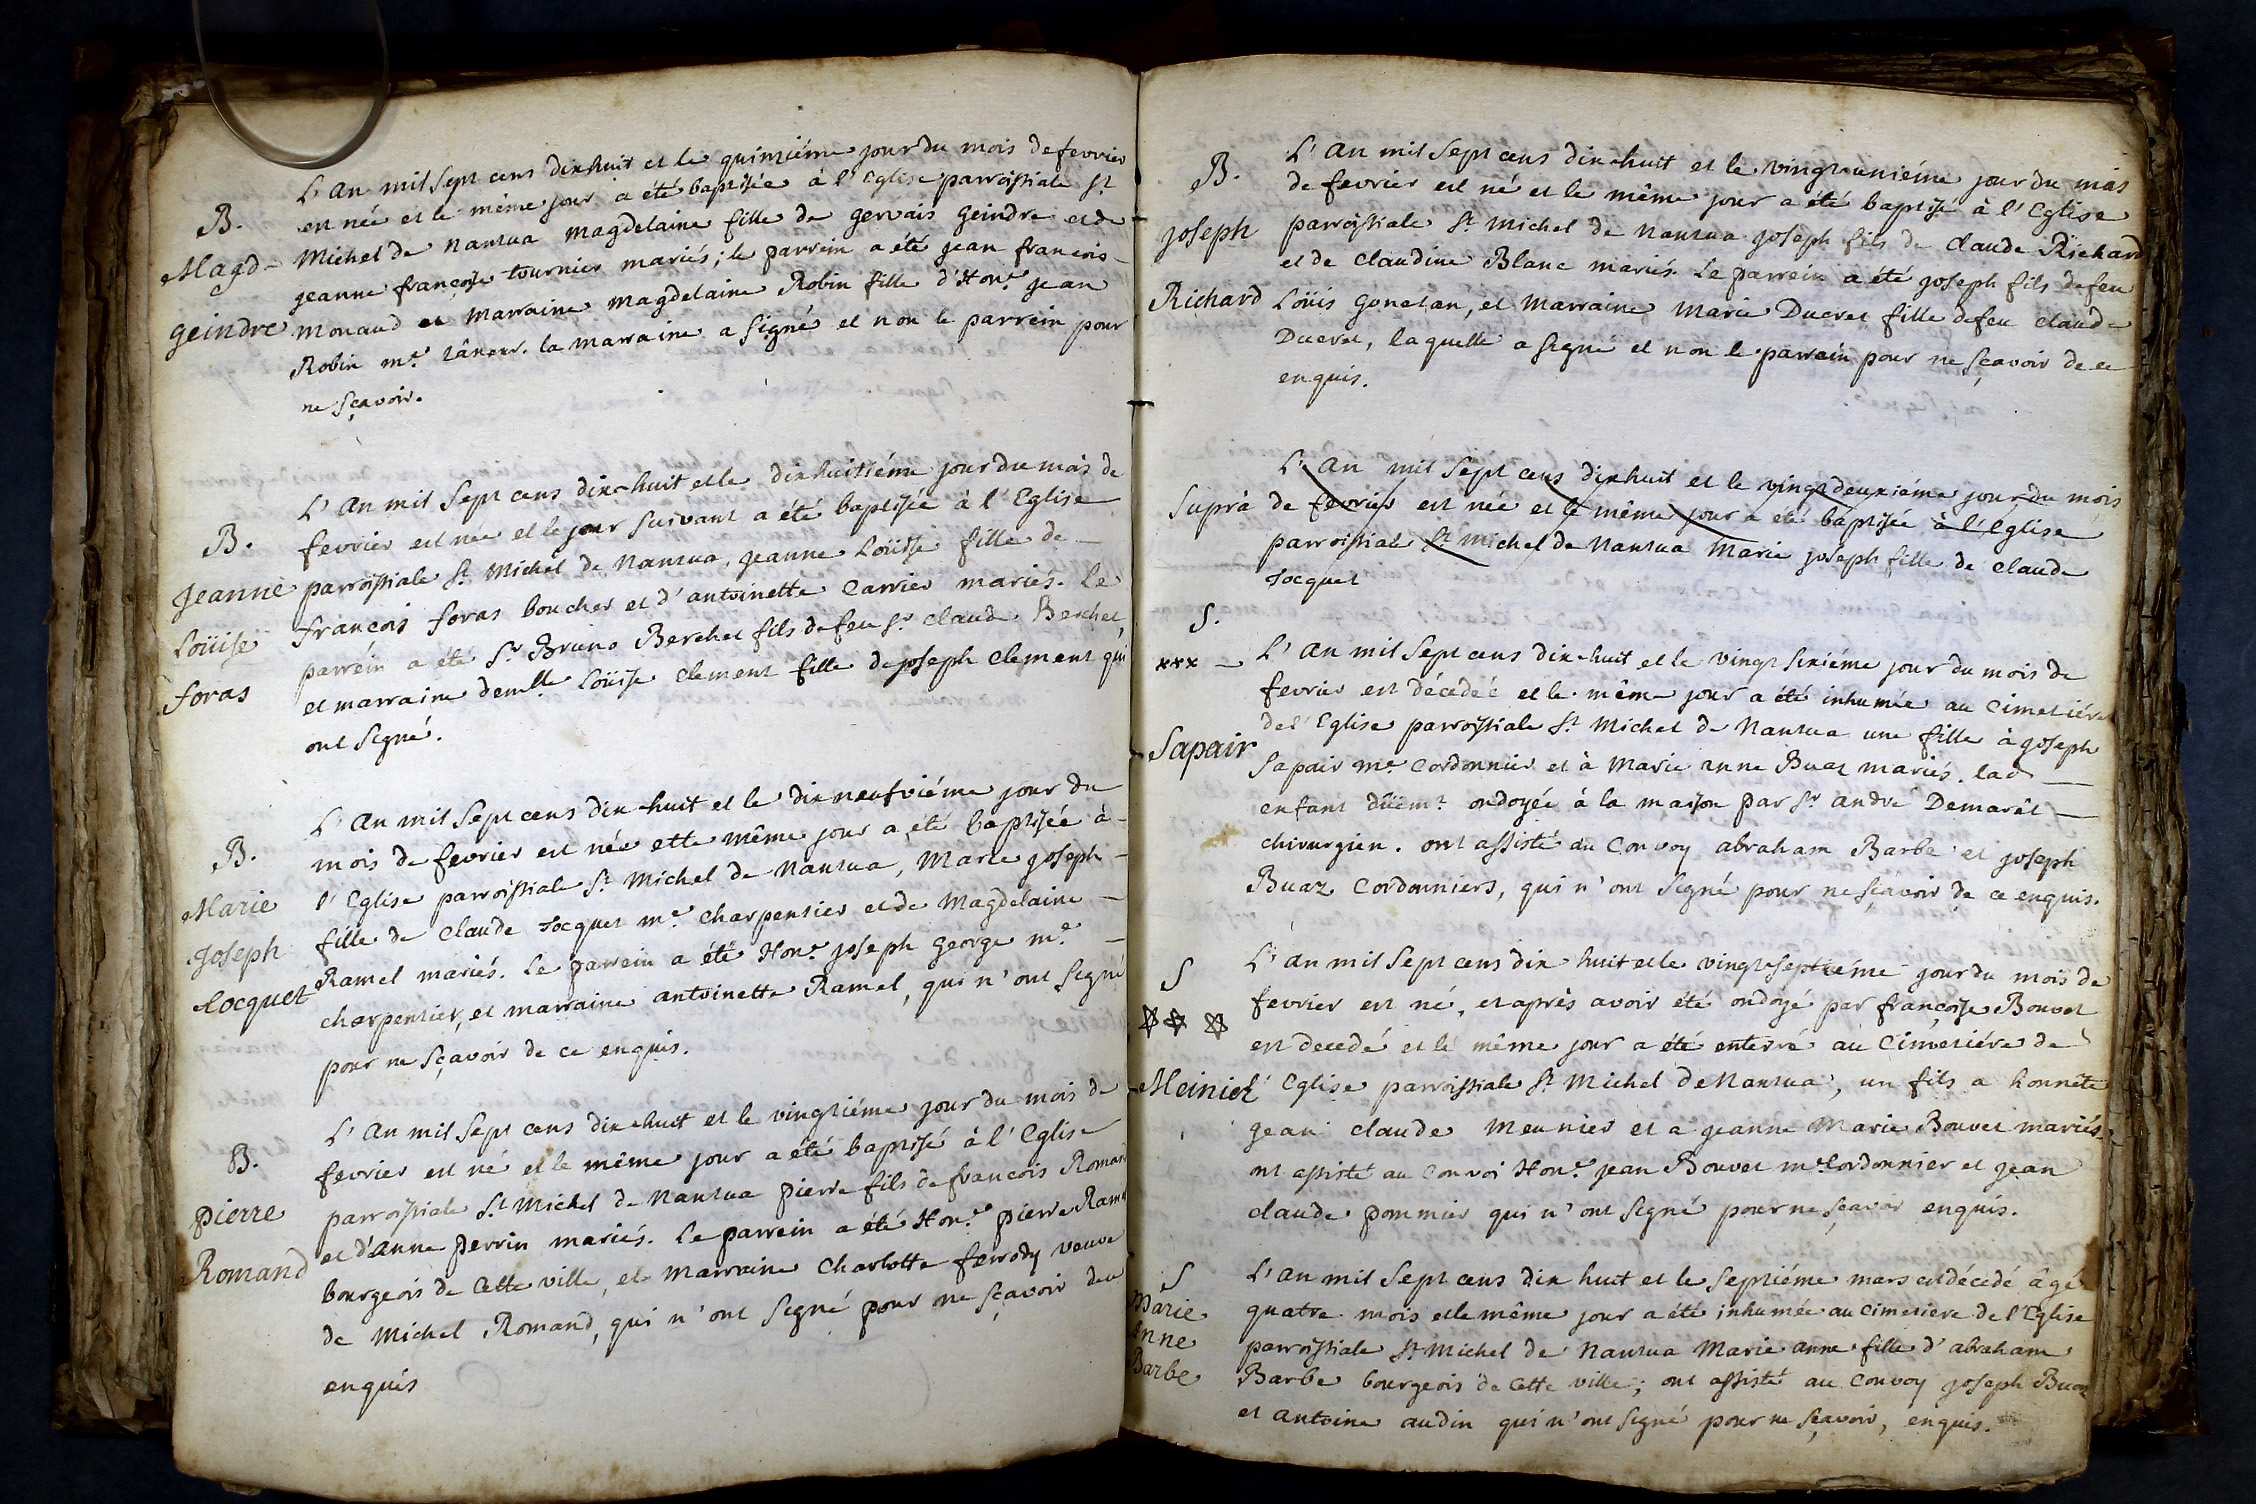 L'An mil Sept cens dixhuit et le quinziéme jour du mois de fevrier
B. est née et le même jour a été baptisée à l'Eglise parroissiale St
Magd- Michel de Nantua Magdelaine fille de gervais geindre et de
jeanne françoise tournier mariés; le parrein a été jean francois-
geindre Monaud et Marraine Magdelaine Robin fille d'Hon.e jean
Robin m.e tâneur. la marraine a signé et non le parrein pour
ne sçavoir.
L'An mil Sept cens dix-huit et le dixhuitiéme jour du mois de
B. fevrier est née et le jour suivant a été baptisée à l'Eglise
Jeanne parroissiale St Michel de Nantua, jeanne Loüise fille de -
Loüise françois foras boucher et d'antoinette Carrier mariés. le
parrein a été Sr Bruno Berchet fils de feu Sr claude Berchet,
foras et marraine demlle Loüise Clement fille de joseph clement qui
ont signé.
L'An mil Sept cens dix-huit et le dixneufviéme jour du
B. mois de fevrier est née et le même jour a été baptisée à -
Marie l'Eglise parroissiale St Michel de Nantua, Marie joseph -
Joseph fille de Claude Jocquet m.e charpentier et de Magdelaine -
Jocquet Ramel mariés. le parrein a été Hon.e joseph george m.e -
charpentier, et marraine antoinette Ramel, qui n'ont signé
pour ne sçavoir de ce enquis.
L'An mil Sept cens dix-huit et le vingtiéme jour du mois de
B. fevrier est né et le même jour a été baptisé à l'Eglise
pierre parroissiale St Michel de Nantua pierre fils de francois Romand
et d'Anne perrin mariés. le parrein a été Hon.e pierre Ramel
Romand bourgeois de cette ville, et marraine Charlotte ferrody veuve
de Michel Romand, qui n'ont signé pour ne sçavoir de ce
enquis
L'An mil Sept cens dix-huit et le vingt uniéme jour du mois
B. de fevrier est né et le même jour a été baptisé à l'Eglise
joseph parroissiale St Michel de Nantua joseph fils de claude Richard
et de claudine Blanc mariés. le parrein a été joseph fils de feu
Richard Loüis gonetan, et marraine Marie Ducret fille de feu claude
Ducret, laquelle a signé et non le parrein pour ne sçavoir de ce
enquis.
L'An mil Sept cens dixhuit et le vingt deuxiéme jour du mois
Suprà de fevrier est née et le même jour a été baptisée à l'Eglise
parroissiale St Michel de Nantua Marie joseph fille de claude
Jocquet
S.
xxx - L'An mil Sept cens dix-huit et le vingt sixiéme jour du mois de
fevrier est décedée et le même jour a été inhumée au Cimetiére
de l'Eglise parroissiale St Michel de Nantua une fille à joseph
Sapair Sapair m.e Cordonnier et à Marie anne Buaz mariés. lad -
enfant düem.t ondoyée à la maison par Sr andré Demarêt -
chirurgien. ont assisté au Convoy abraham Barbe et joseph
Buaz Cordonniers, qui n'ont signé pour ne sçavoir de ce enquis.
L'An mil Sept cens dix-huit et le vingt septiéme jour du mois de
S fevrier est né, et après avoir été ondoyé par françoise Bouvet
est decedé et le même jour a été enterré au Cimetiére de
Meinier l'Eglise parroissiale St Michel de Nantua, un fils a honnête
jean claude Meunier et a jeanne Marie Bouvet mariés.
ont assisté au Convoi Hon.e jean Bouvet m.e Cordonnier et jean
claude pommier qui n'ont signé pour ne sçavoir enquis.
S L'An mil Sept cens dix huit et le septiéme mars est décedé âgé
Marie quatre mois et le même jour a été inhumée au Cimetiere de l'Eglise
anne parroissiale St Michel de Nantua Marie anne fille d'abraham
Barbe Barbe bourgeois de cette ville; ont assisté au Convoy joseph Buaz
et antoine audin qui n'ont signé pour ne sçavoir, enquis.